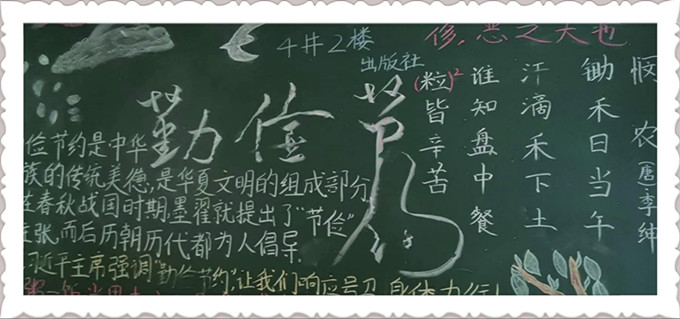 4井2楼
出版社
侈,恶之大也
勤俭节约
悯农(唐)李绅
锄禾日当午
汗滴禾下土
谁知盘中餐
(粒)²皆辛苦
俭节约是中华
族的传统美德,是华夏文明的组成部分
在春秋战国时期,墨翟就提出了"节俭"
主张,而后历朝历代都为人倡导.
习近平主席强调"勤俭节约",让我们响应号召,身体力行!